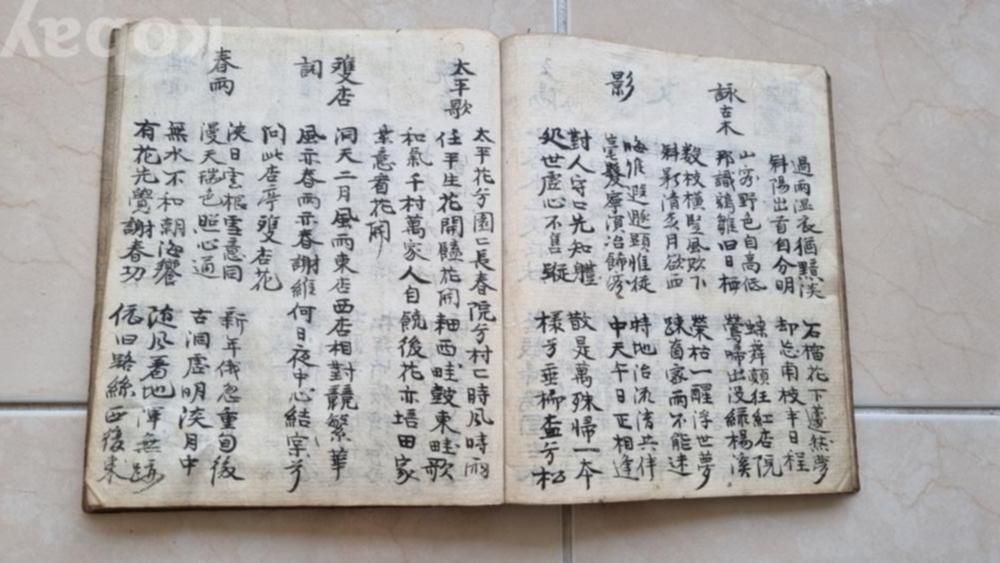 過雨溫衣猶黯淡 石榴花下蘧然夢
斜陽出首自分明 却忘南枝半日程
詠古木
山客野色自高低 蝶舞顛狂紅店院
那識鵷雛旧日栖 鶯啼出没綠楊溪
數枝橫墅風吹下 榮枯一醒浮世夢
斜影清秀月欲西 踈而不能迷
影
遐遯顕惟徒 特地治流清共伴
毫髮寧演冶飾容 中天午日正相逢
對人守口先知軆 散是萬殊帰一本
処世虛心不售蹤 樣兮垂柳盃兮松
太平歌
太平花兮園〻長春院兮村〻時風時雨
任平生花開隨花開耞西畦鼓東畦歌
和氣千村萬家人自饒後花亦培田家
業意看花開
雙店
詞
洞天二月風雨東店西店相對競繁華
風亦春雨亦春謝維何日夜中心結宗兮
問此店亭雙杏花
春雨
浹日雲根雪意同 新年俄忽重旬後
漫天瑞色照心通 古洞虛明淡月中
無水不和朝海響 随風看地渾無跡
有花先覺謝春功 依旧路絲西復東
Kobay